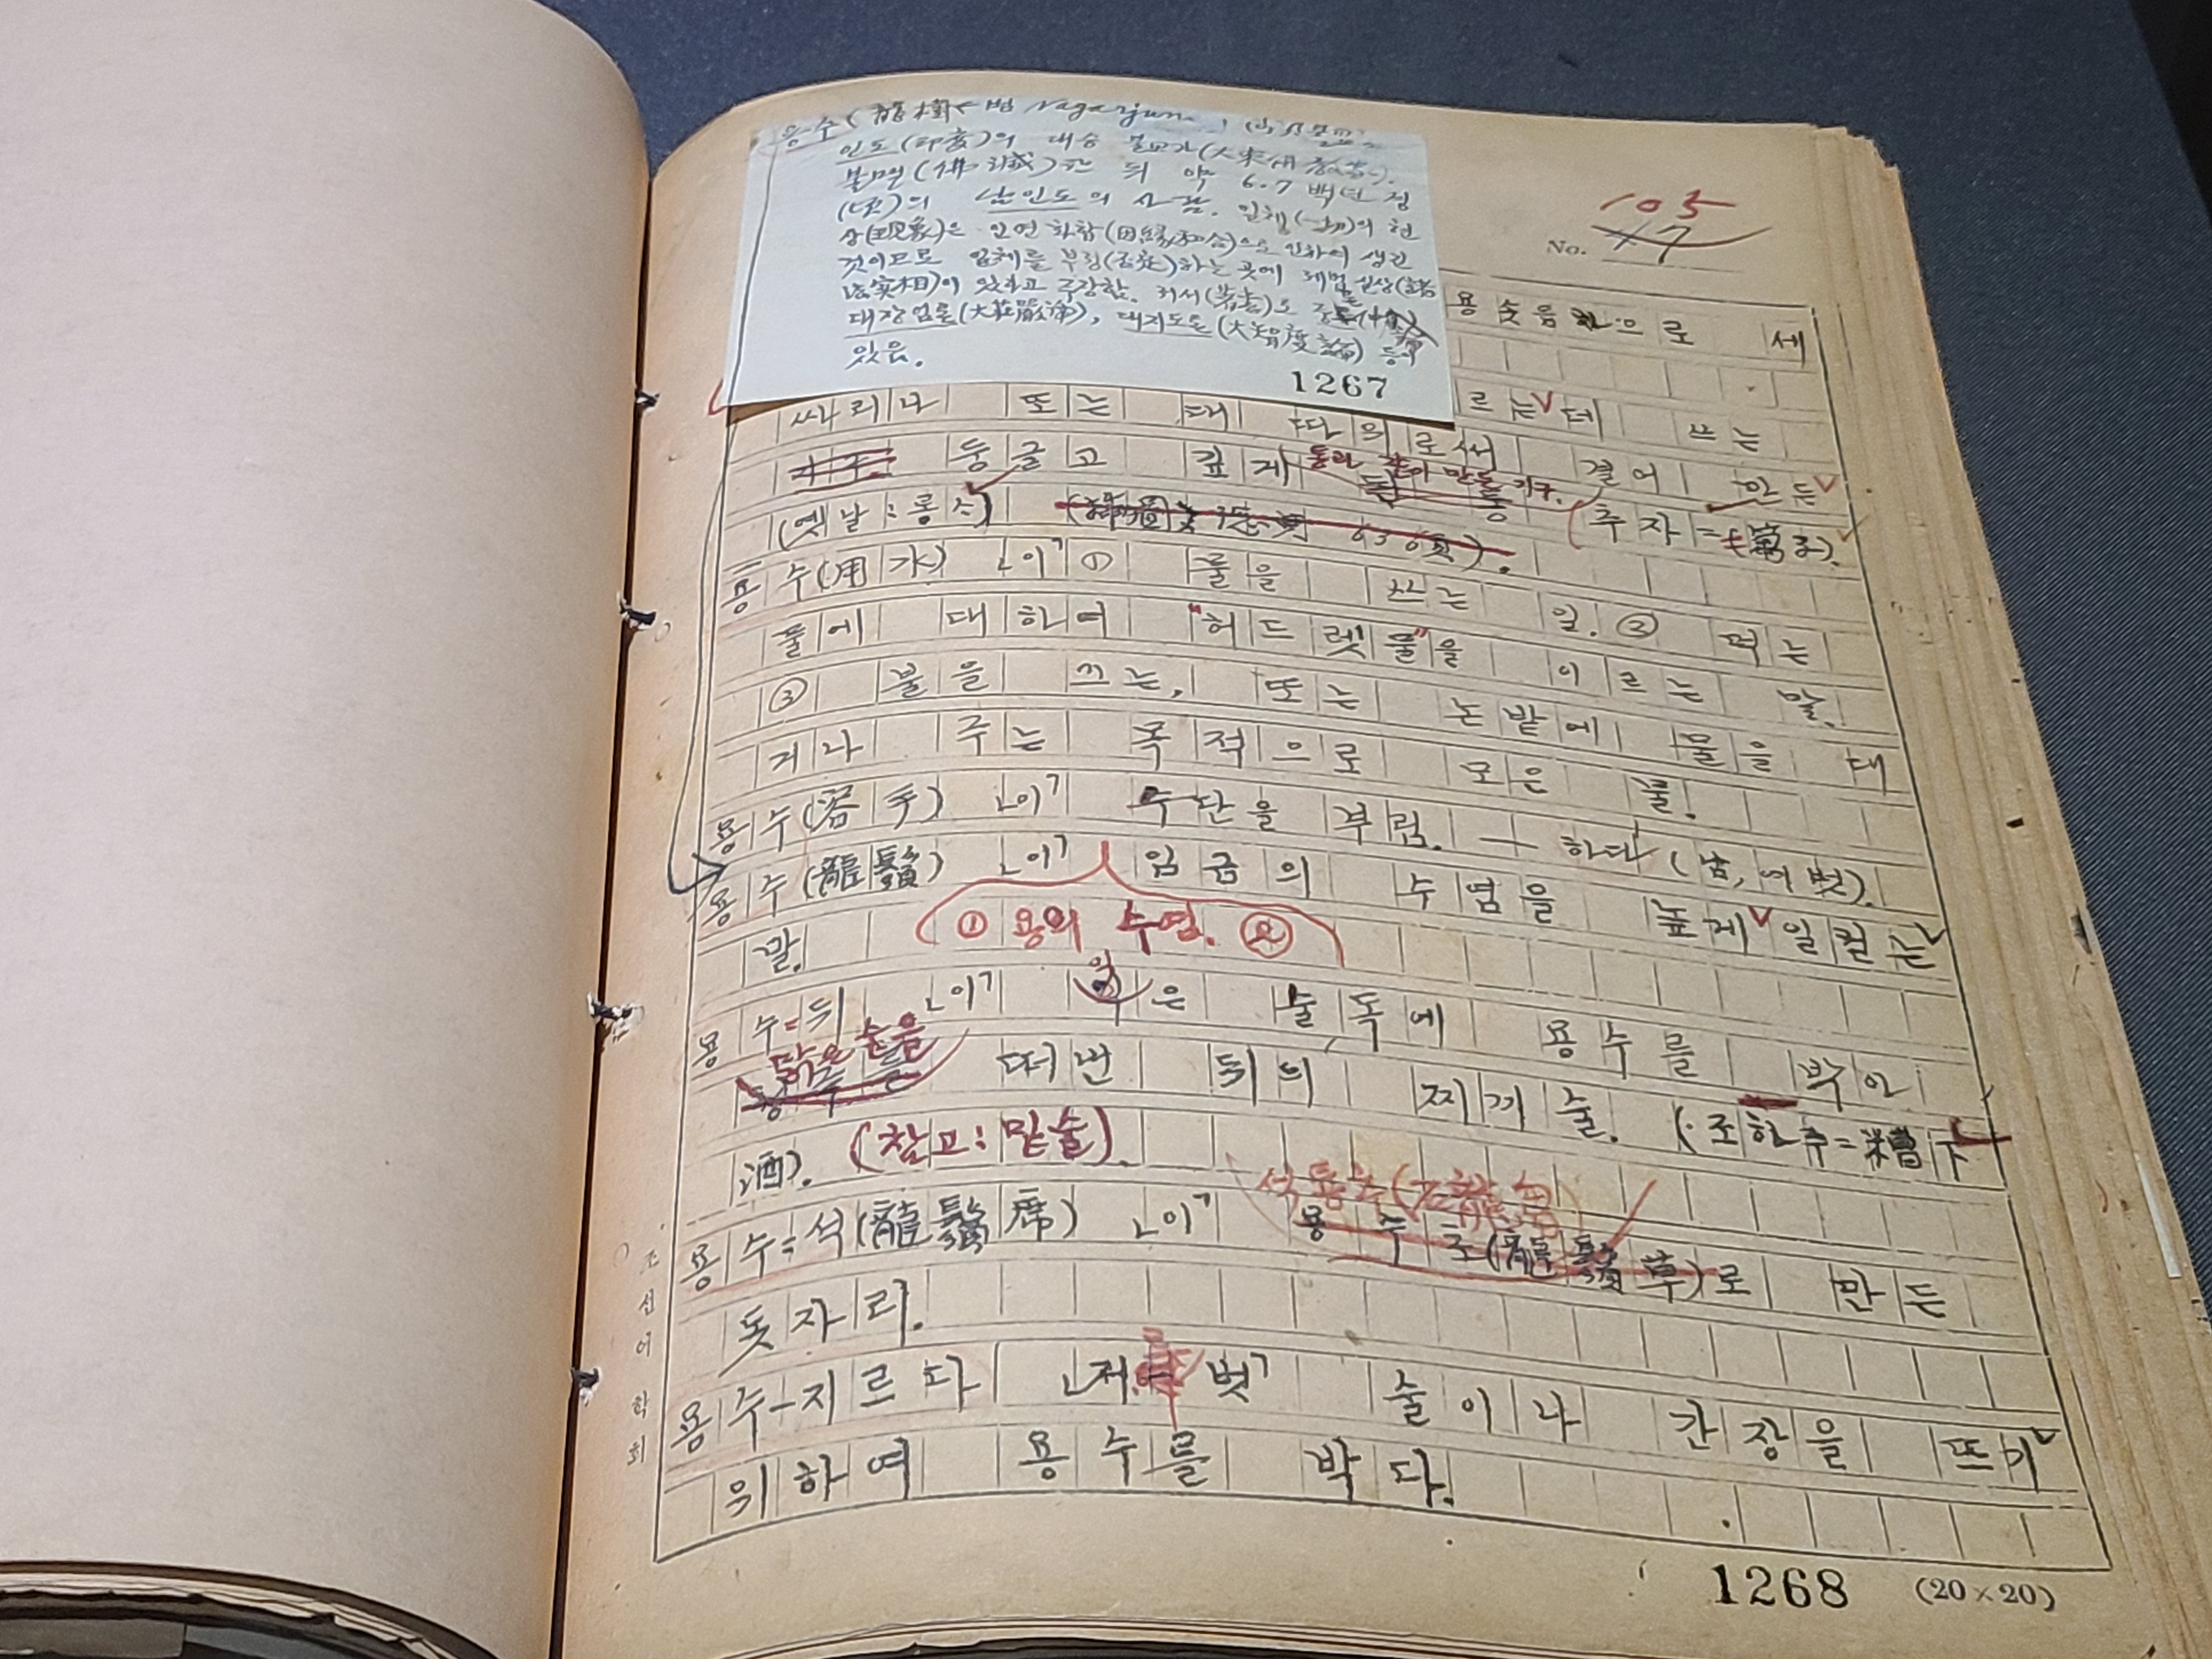 용수(龍樹< 범 Nagarjuna
인도(印度)의 대승 불교가(大乘佛敎家).
불멸(佛滅)한 뒤 약 6.7 백년 경
(頃)의 남인도의 사람. 일체(一切)의 현
상(現象)은 인연 화합(因緣和合)으로 인하여 생긴
것이므로 일체를 부정(否定)하는 곳에 제법 실상(諸
法實相)이 있다고 주장함. 저서(著書)로
대장엄론(大莊嚴論), 대지도론(大智度論) 등이
있음.
1267
105
No. 47
용숫음 으로 세
르는데 쓰는
싸리나 또는 대 따의로써 결어 만든
둥글고 깊게 통과 같이 만든 기구. (추자=篘子).
(옛날: 롱소)
용수(用水) ㄴ이ㄱ ① 물을 쓰는 일. ② 먹는
물에 대하여 "허드렛물"을 이르는 말.
③ 불을 끄는, 또는 논밭에 물을 대
거나 주는 목적으로 모은 물.
용수(容手) ㄴ이ㄱ 수단을 부림. ─하다(남, 여벗).
용수(龍鬚) ㄴ이ㄱ 임금의 수염을 높게 일컫는
① 용의 수염. ②
말.
용수=뒤 ㄴ이ㄱ 익은 술독에 용수를 박아
맑은 술을 떠낸 뒤의 찌끼술. (조하주=糟下
酒). (참고: 밑술).
석룡추(石龍芻)
용수=석(龍鬚席) ㄴ이ㄱ 용수초(龍鬚草)로 만든
돗자리.
용수-지르다 ㄴ저 벗ㄱ 술이나 간장을 뜨기
위하여 용수를 박다.
조선어학회
1268 (20×20)